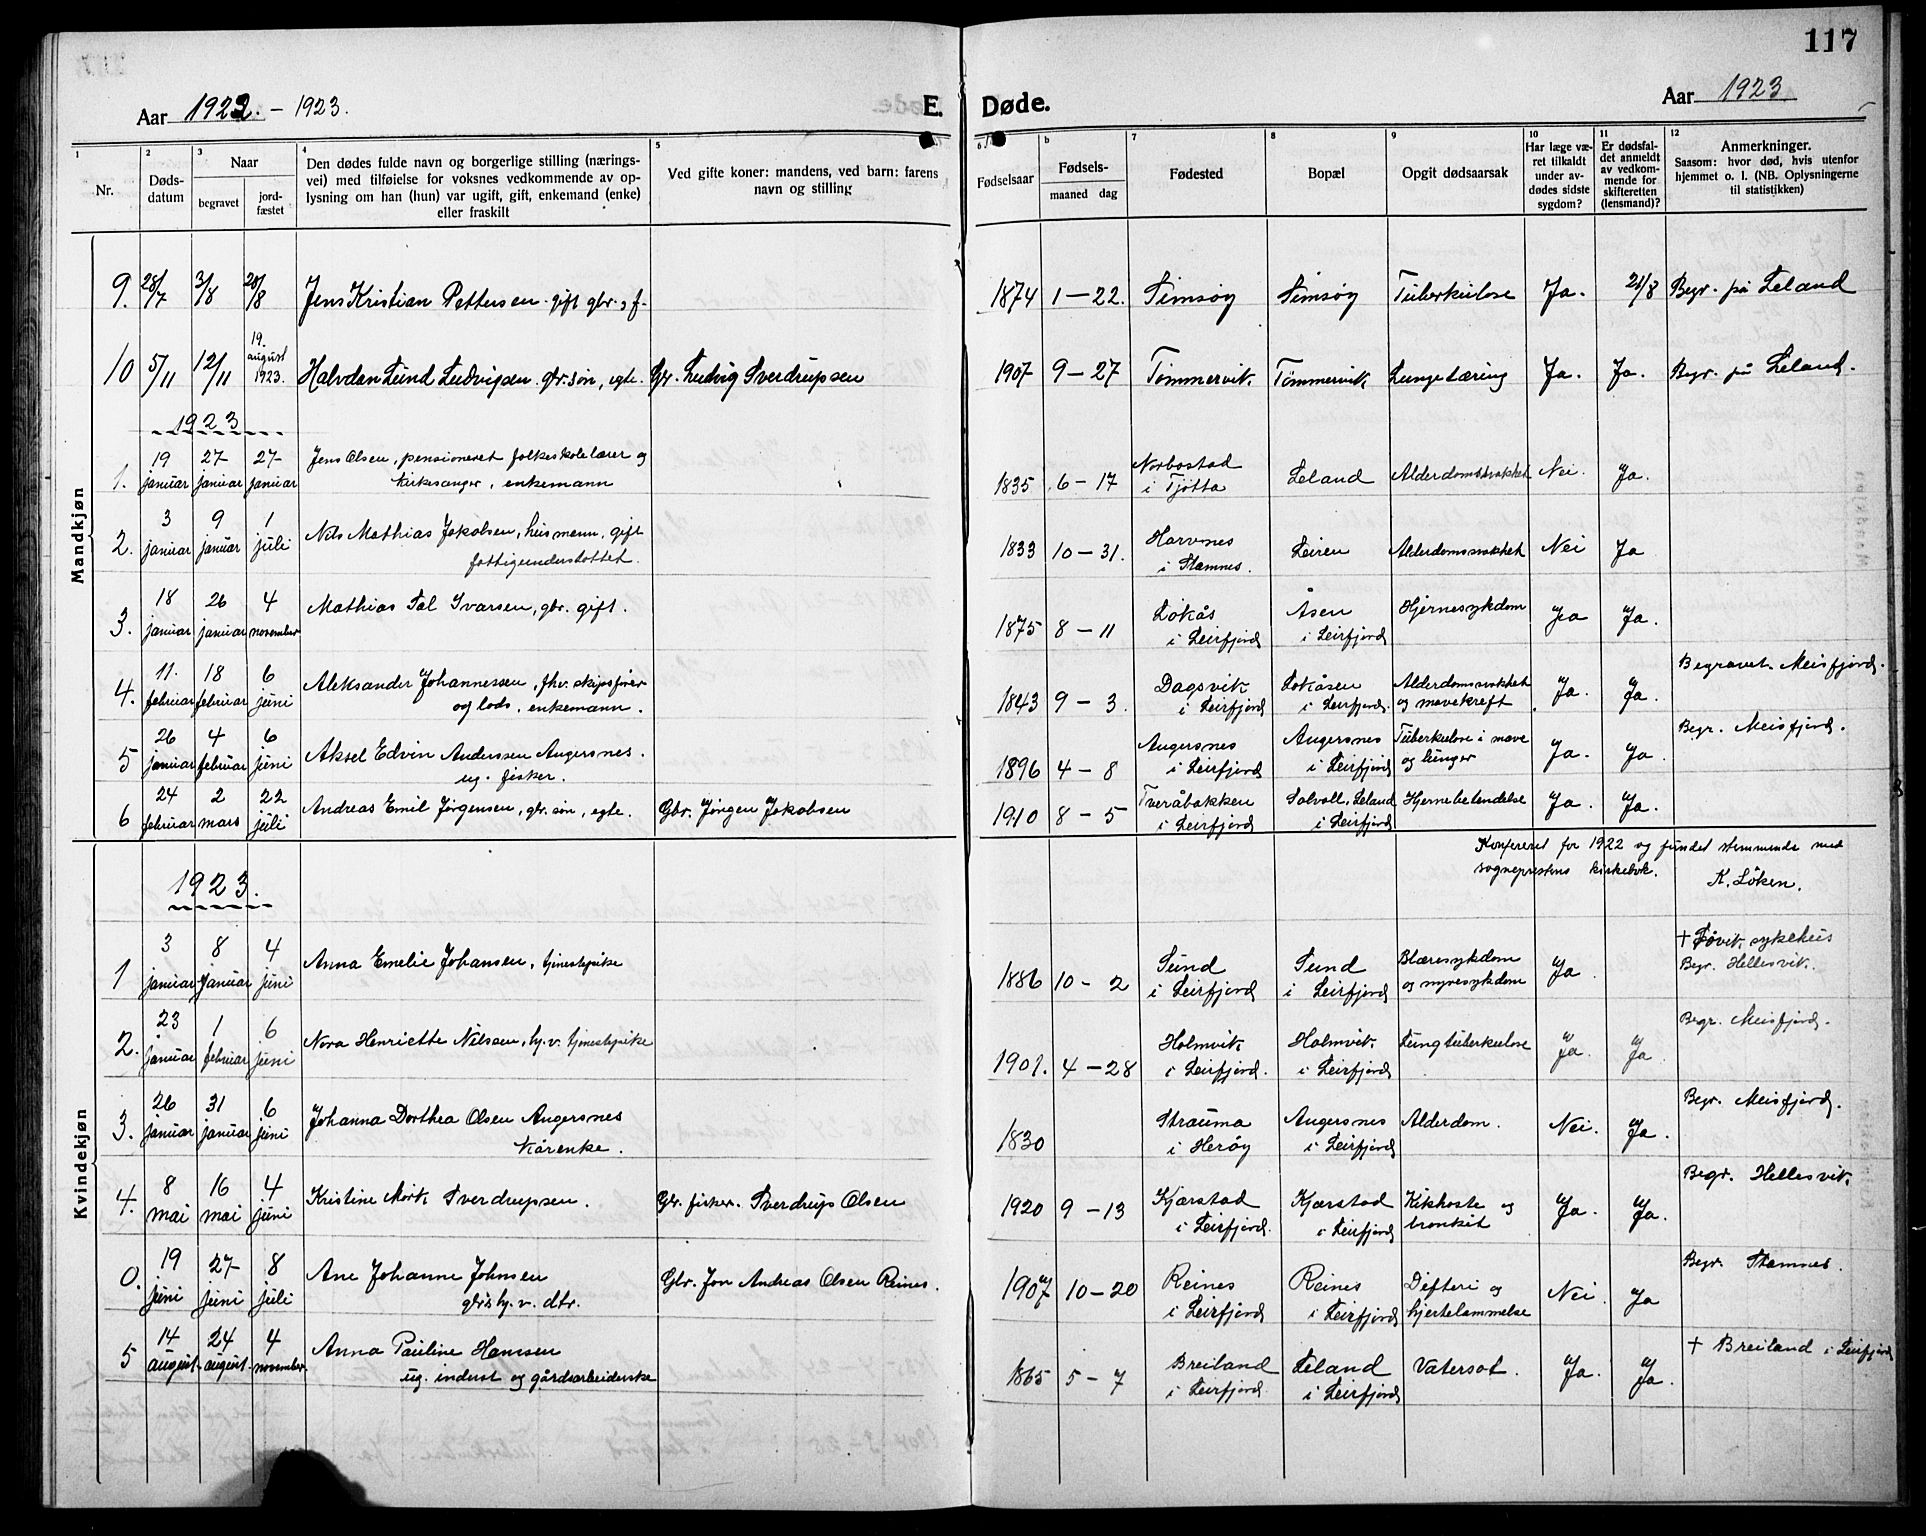 117
Aar 1922. - 1923.
E. Døde.
Aar 1923
1 Nr.
2 Døds-datum
3 Naar begravet jord-fæstet
4 Den dødes fulde navn og borgerlige stilling (nærings-
vei) med tilføielse for voksnes vedkommende av op-
lysning om han (hun) var ugift, gift, enkemand (enke)
eller fraskilt
5 Ved gifte koner: mandens, ved barn: farens
navn og stilling
6 a Fødselsaar
b Fødsels-
maaned dag
7 Fødested
8 Bopæl
9 Opgit dødsaarsak
10 Har læge væ-
ret tilkaldt
under av-
dødes sidste
sygdom?
11 Er dødsfal-
det anmeldt
av vedkom-
mende for
skifteretten
(lensmand)?
12 Anmerkninger.
Saasom: hvor død, hvis utenfor
hjemmet o. l. (NB. Oplysningerne
til statistikken)
Mandkjøn
9. 28/7 3/8 20/8 Jens Kristian Pettersen gift gbr. & f. 1874 1-22. Simsøy Simsøy Tuberkulose Ja. 21/8 Begr. på Leland
10 5/11 12/11 19. august 1923. Halvdan Lund Ludvigsen gbr. søn, egte. Gbr. Ludvig Sverdrupsen 1907 9-27 Tømmervik Tømmervik Lungetæring Ja. Ja. Begr. på Leland.
1923
1. 19 januar 27 januar 27 januar Jens Olsen, pensioneret folkeskolelærer og
kirkesanger, enkemann 1835 6-17 Norbostad
i Tjøtta Leland Alderdomssvakhet Nei. Ja.
2. 3 januar 9 januar 1 juli Nils Mathias Jakobsen, husmann, gift
fattigunderstøttet. 1833 10-31. Harvnes
i Stamnes. Leiren Alderdomssvakhet Nei Ja
3. 18 januar 26 januar 4 november Mathias Tal Ivarsen, gbr. gift. 1875 8-11 Løkås
i Leirfjord Åsen
i Leirfjord Hjernesykdom Ja Ja.
4. 11. februar 18 februar 6 juni Aleksander Johannessen, fhv. skipsfører
og lods, enkemann. 1843 9-3. Dagsvik
i Leirfjord Løkåsen
i Leirfjord. Alderdomssvakhet
og mavekreft Ja. Ja. Begravet Meisfjord.
5 26 januar 4 februar 6 juni Aksel Edvin Anderssen Angersnes.
ug. fisker. 1896 4-8 Angersnes
i Leirfjord Angersnes
i Leirfjord Tuberkulose i mave
og lunger Ja. Ja. Begr. Meisfjord.
6 24 februar 2 mars 22 juli Andreas Emil Jørgensen, gbr. søn, egte. Gbr. Jørgen Jakobsen 1910 8-5 Tveråbakken
i Leirfjord Solvoll, Leland
i Leirfjord Hjernebetendelse Ja. Ja.
Konfereret for 1922 og fundet stemmende med
sogneprestens kirkebok. K. Løken.
Kvindekjøn
1923.
1 3 januar 8 januar 4 juni Anna Emelie Johansen, tjenestepike 1886 10-2 Sund
i Leirfjord Sund
i Leirfjord Blæresykdom
og nyresykdom Ja † Søvik sykehus
Begr. Hellesvik.
2. 23 januar 1 februar 6 juni Nora Henriette Nilsen, hj. v. tjenestepike 1901. 4-28 Holmvik
i Leirfjord. Holmvik
i Leirfjord Lungtuberkulose Ja. Ja Begr. Meisfjord.
3. 26 januar 31 januar 6 juni Johanna Dorthea Olsen Angersnes
kårenke. 1830 Strauma
i Herøy Angersnes
i Leirfjord Alderdom. Nei. Ja. Begr. Meisfjord.
4. 8 mai 16 mai 4 juni Kristine Mørk Sverdrupsen. Gbr. fisker. Sverdrup Olsen 1920 9-13 Kjærstad
i Leirfjord. Kjærstad
i Leirfjord Kikhoste og
bronkit Ja. Ja. Begr. Hellesvik
0. 19 juni 27 juni 8 juli Ane Johanne Johnsen
gbr.s hj. v. dtr. Gbr. Jon Andreas Olsen Reines. 1907 10-20 Reines
i Leirfjord Reines
i Leirfjord Difteri og
hjertelammelse Nei. Ja Begr. Stamnes.
5 14 august. 24 august. 4 november. Anna Pauline Hansen
ug. inderst og gårdsarbeiderske 1865 5-7 Breiland
i Leirfjord. Leland
i Leirfjord Vatersot. Ja. Ja. † Breiland i Leirfjord